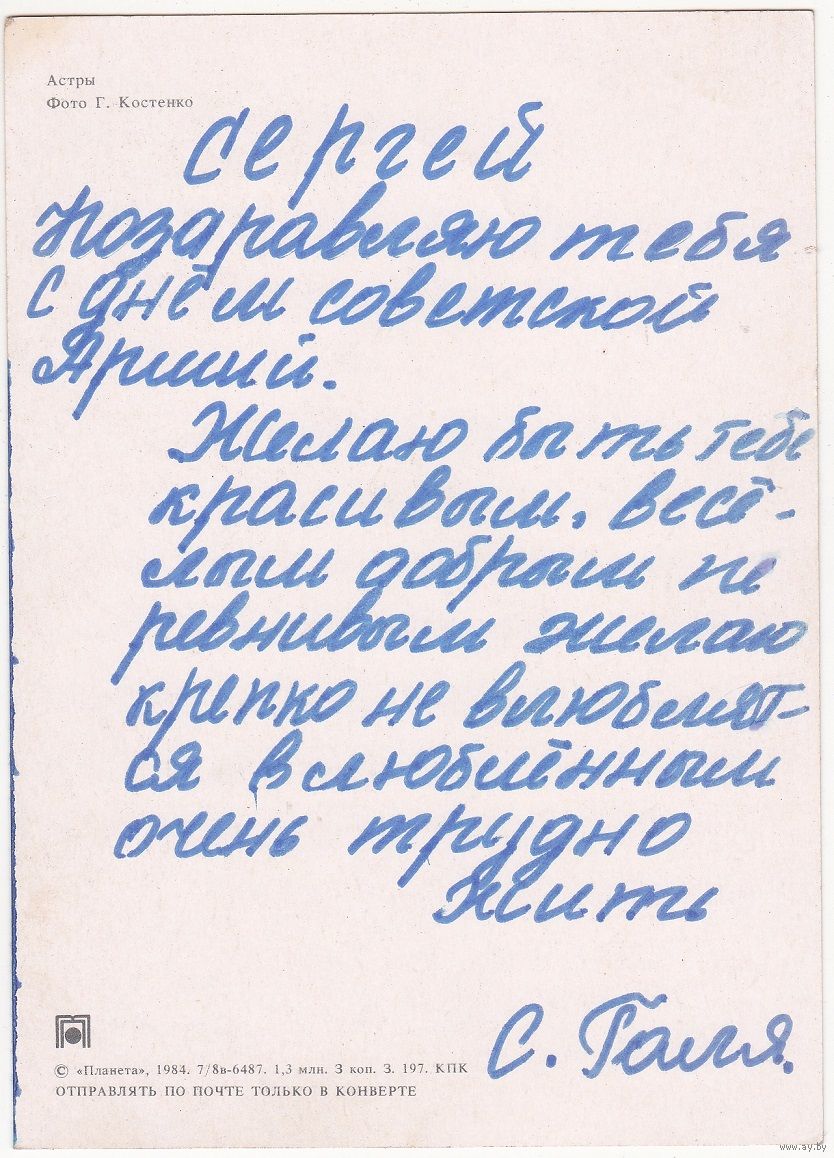 Астры
Фото Г. Костенко
Сергей
поздравляю тебя
с днём советской
Армий.
Желаю быть тебе
красивым, весё-
лым добрым не
ревнивым желаю
крепко не влюблят-
ся влюблённым
очень трудно
жить
С. Галя.
© «Планета», 1984. 7/8в-6487. 1,3 млн. 3 коп. З. 197. КПК
ОТПРАВЛЯТЬ ПО ПОЧТЕ ТОЛЬКО В КОНВЕРТЕ
www.ay.by